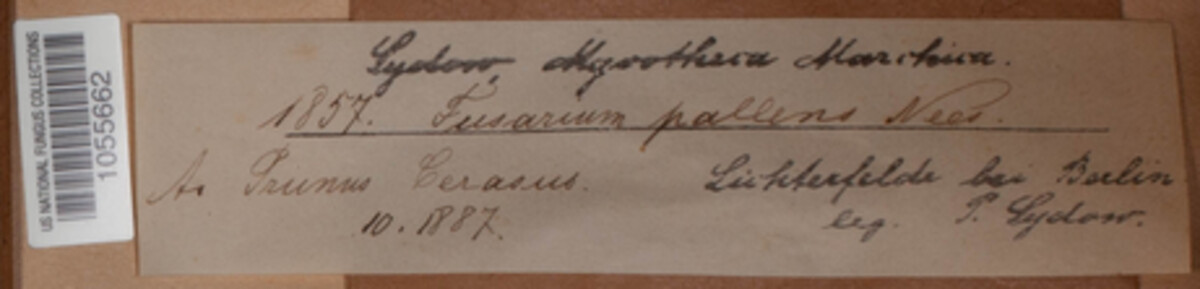 US NATIONAL FUNGUS COLLECTIONS
1055662
Sydow, Mycotheca Marchica.
1857. Fusarium pallens Nees.
An Prunus Cerasus.
10. 1887.
Lichterfelde bei Berlin
leg. P. Sydow.